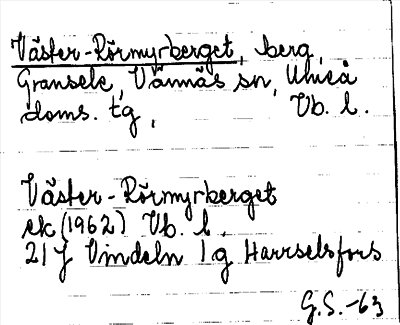 Väster-Rörmyrberget, berg,
Gransele, Vännäs sn, Umeå
doms. tg, Vb. l.
Väster-Rörmyrberget
ek (1962) Vb. l.
21 J Vindeln 1 g Harrselsfors
G.S.-63